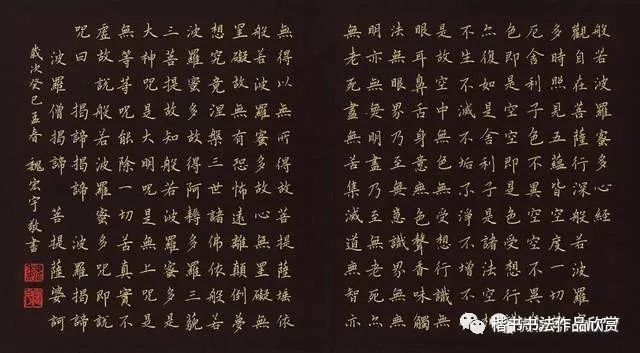 般若波羅蜜多心經
觀自在菩薩行深般若波羅
多時照見五蘊皆空度一切
厄舍利子色不異空空不異
色即是空空即是色受想行
亦復如是舍利子是諸法空
不生不滅不垢不淨不增不
是故空中無色無受想行識無
眼耳鼻舌身意無色聲香味觸
法無眼界乃至無意識界無無
明亦無無明盡乃至無老死亦
無老死盡無苦集滅道無智亦
無得以無所得故菩提薩埵依
般若波羅蜜多故心無罣礙無
罣礙故無有恐怖遠離顛倒夢
想究竟涅槃三世諸佛依般若
波羅蜜多故得阿耨多羅三藐
三菩提故知般若波羅蜜多是
大神呪是大明呪是無上呪是
無等等呪能除一切苦真實不
虛故說般若波羅蜜多呪即說
呪曰 揭諦揭諦 波羅揭諦
波羅僧揭諦 菩提薩婆訶
歲次癸巳孟春 魏宏宇敬書
楷书书法作品欣赏